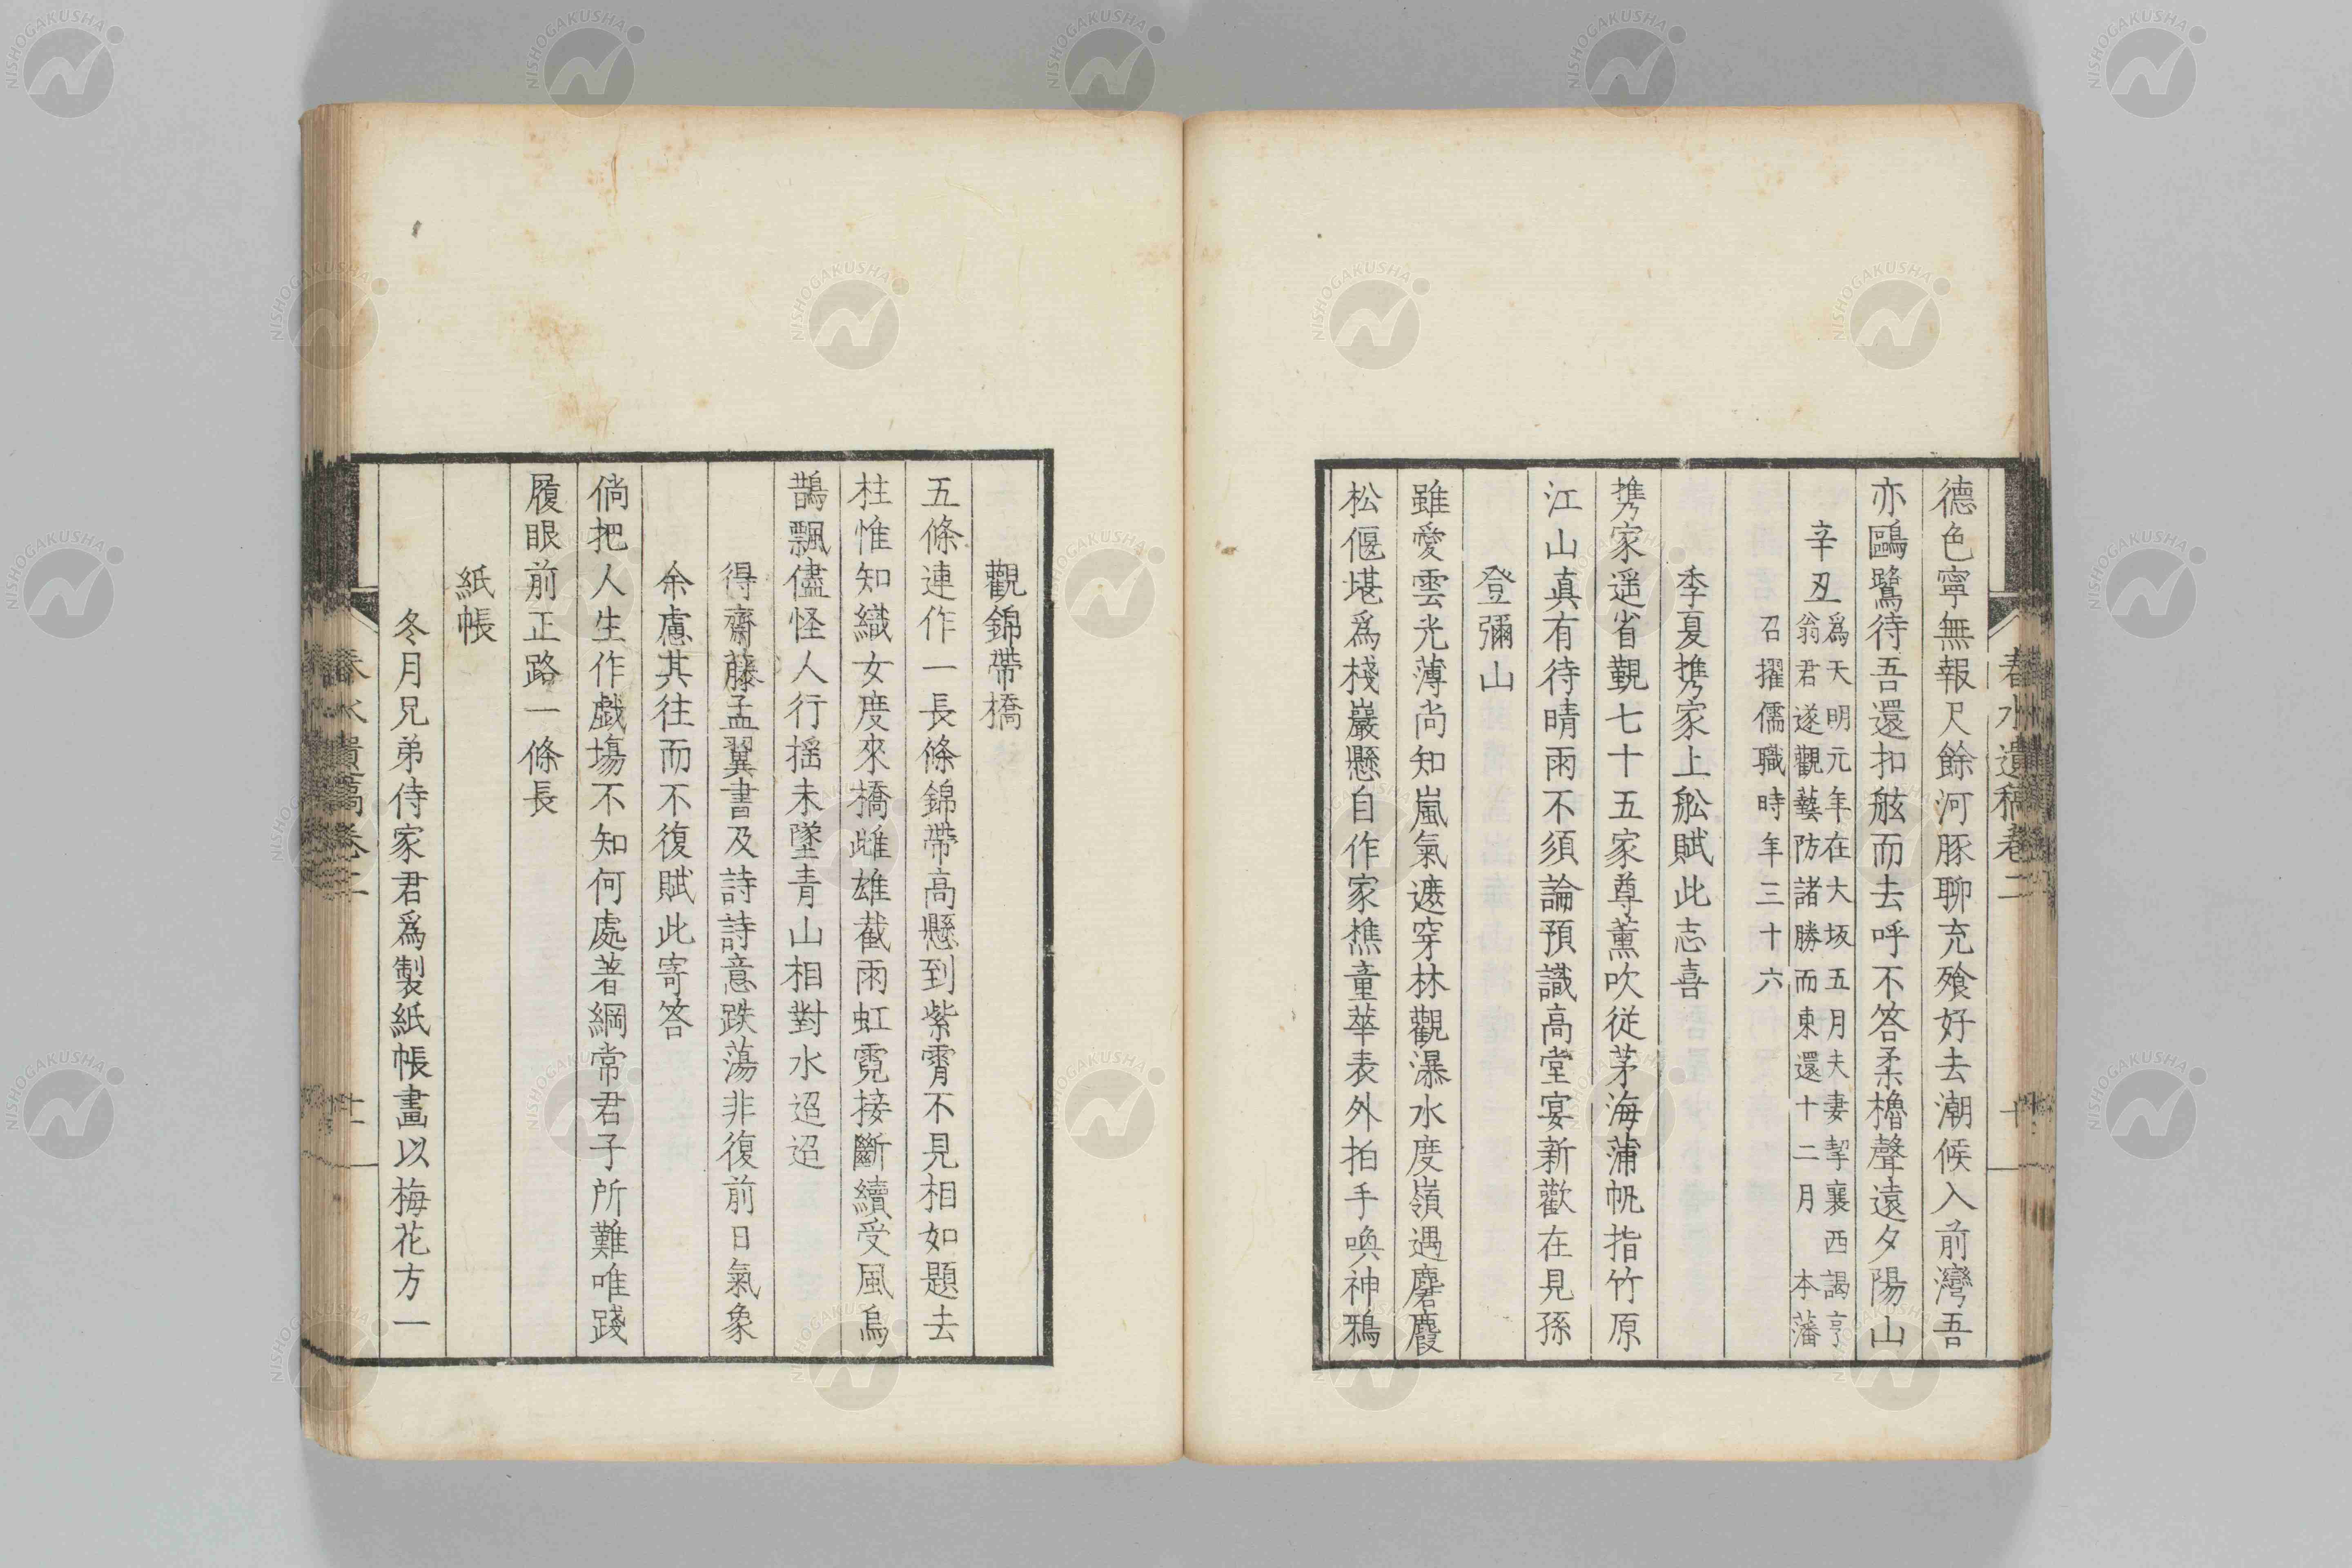 春水遺稿卷二
十
德色寧無報尺餘河豚聊充飱好去潮候入前灣吾
亦鷗鷺待吾還扣舷而去呼不答柔櫓聲遠夕陽山
辛丑
爲天明元年在大坂五月夫妻挈襄西謁亨
翁君遂觀藝防諸勝而東還十二月 本藩
召擢儒職時年三十六
季夏携家上舩賦此志喜
携家遥省覲七十五家尊薰吹從茅海蒲帆指竹原
江山真有待晴雨不須論預識高堂宴新歡在見孫
登彌山
雖愛雲光薄尚知嵐氣遮穿林觀瀑水度嶺遇麏麚
松偃堪爲棧巖懸自作家樵童華表外拍手喚神鴉
觀錦帶橋
五條連作一長條錦帶高懸到紫霄不見相如題去
柱惟知織女度來橋雌雄截雨虹霓接斷續受風烏
鵲飄儘怪人行揺未墜青山相對水迢迢
得齋藤孟翼書及詩詩意跌蕩非復前日氣象
余慮其往而不復賦此寄答
倘把人生作戯場不知何處著綱常君子所難唯踐
履眼前正路一條長
紙帳
冬月兄弟侍家君爲製紙帳畫以梅花方一
春水遺稿卷二
NISHOGAKUSHA